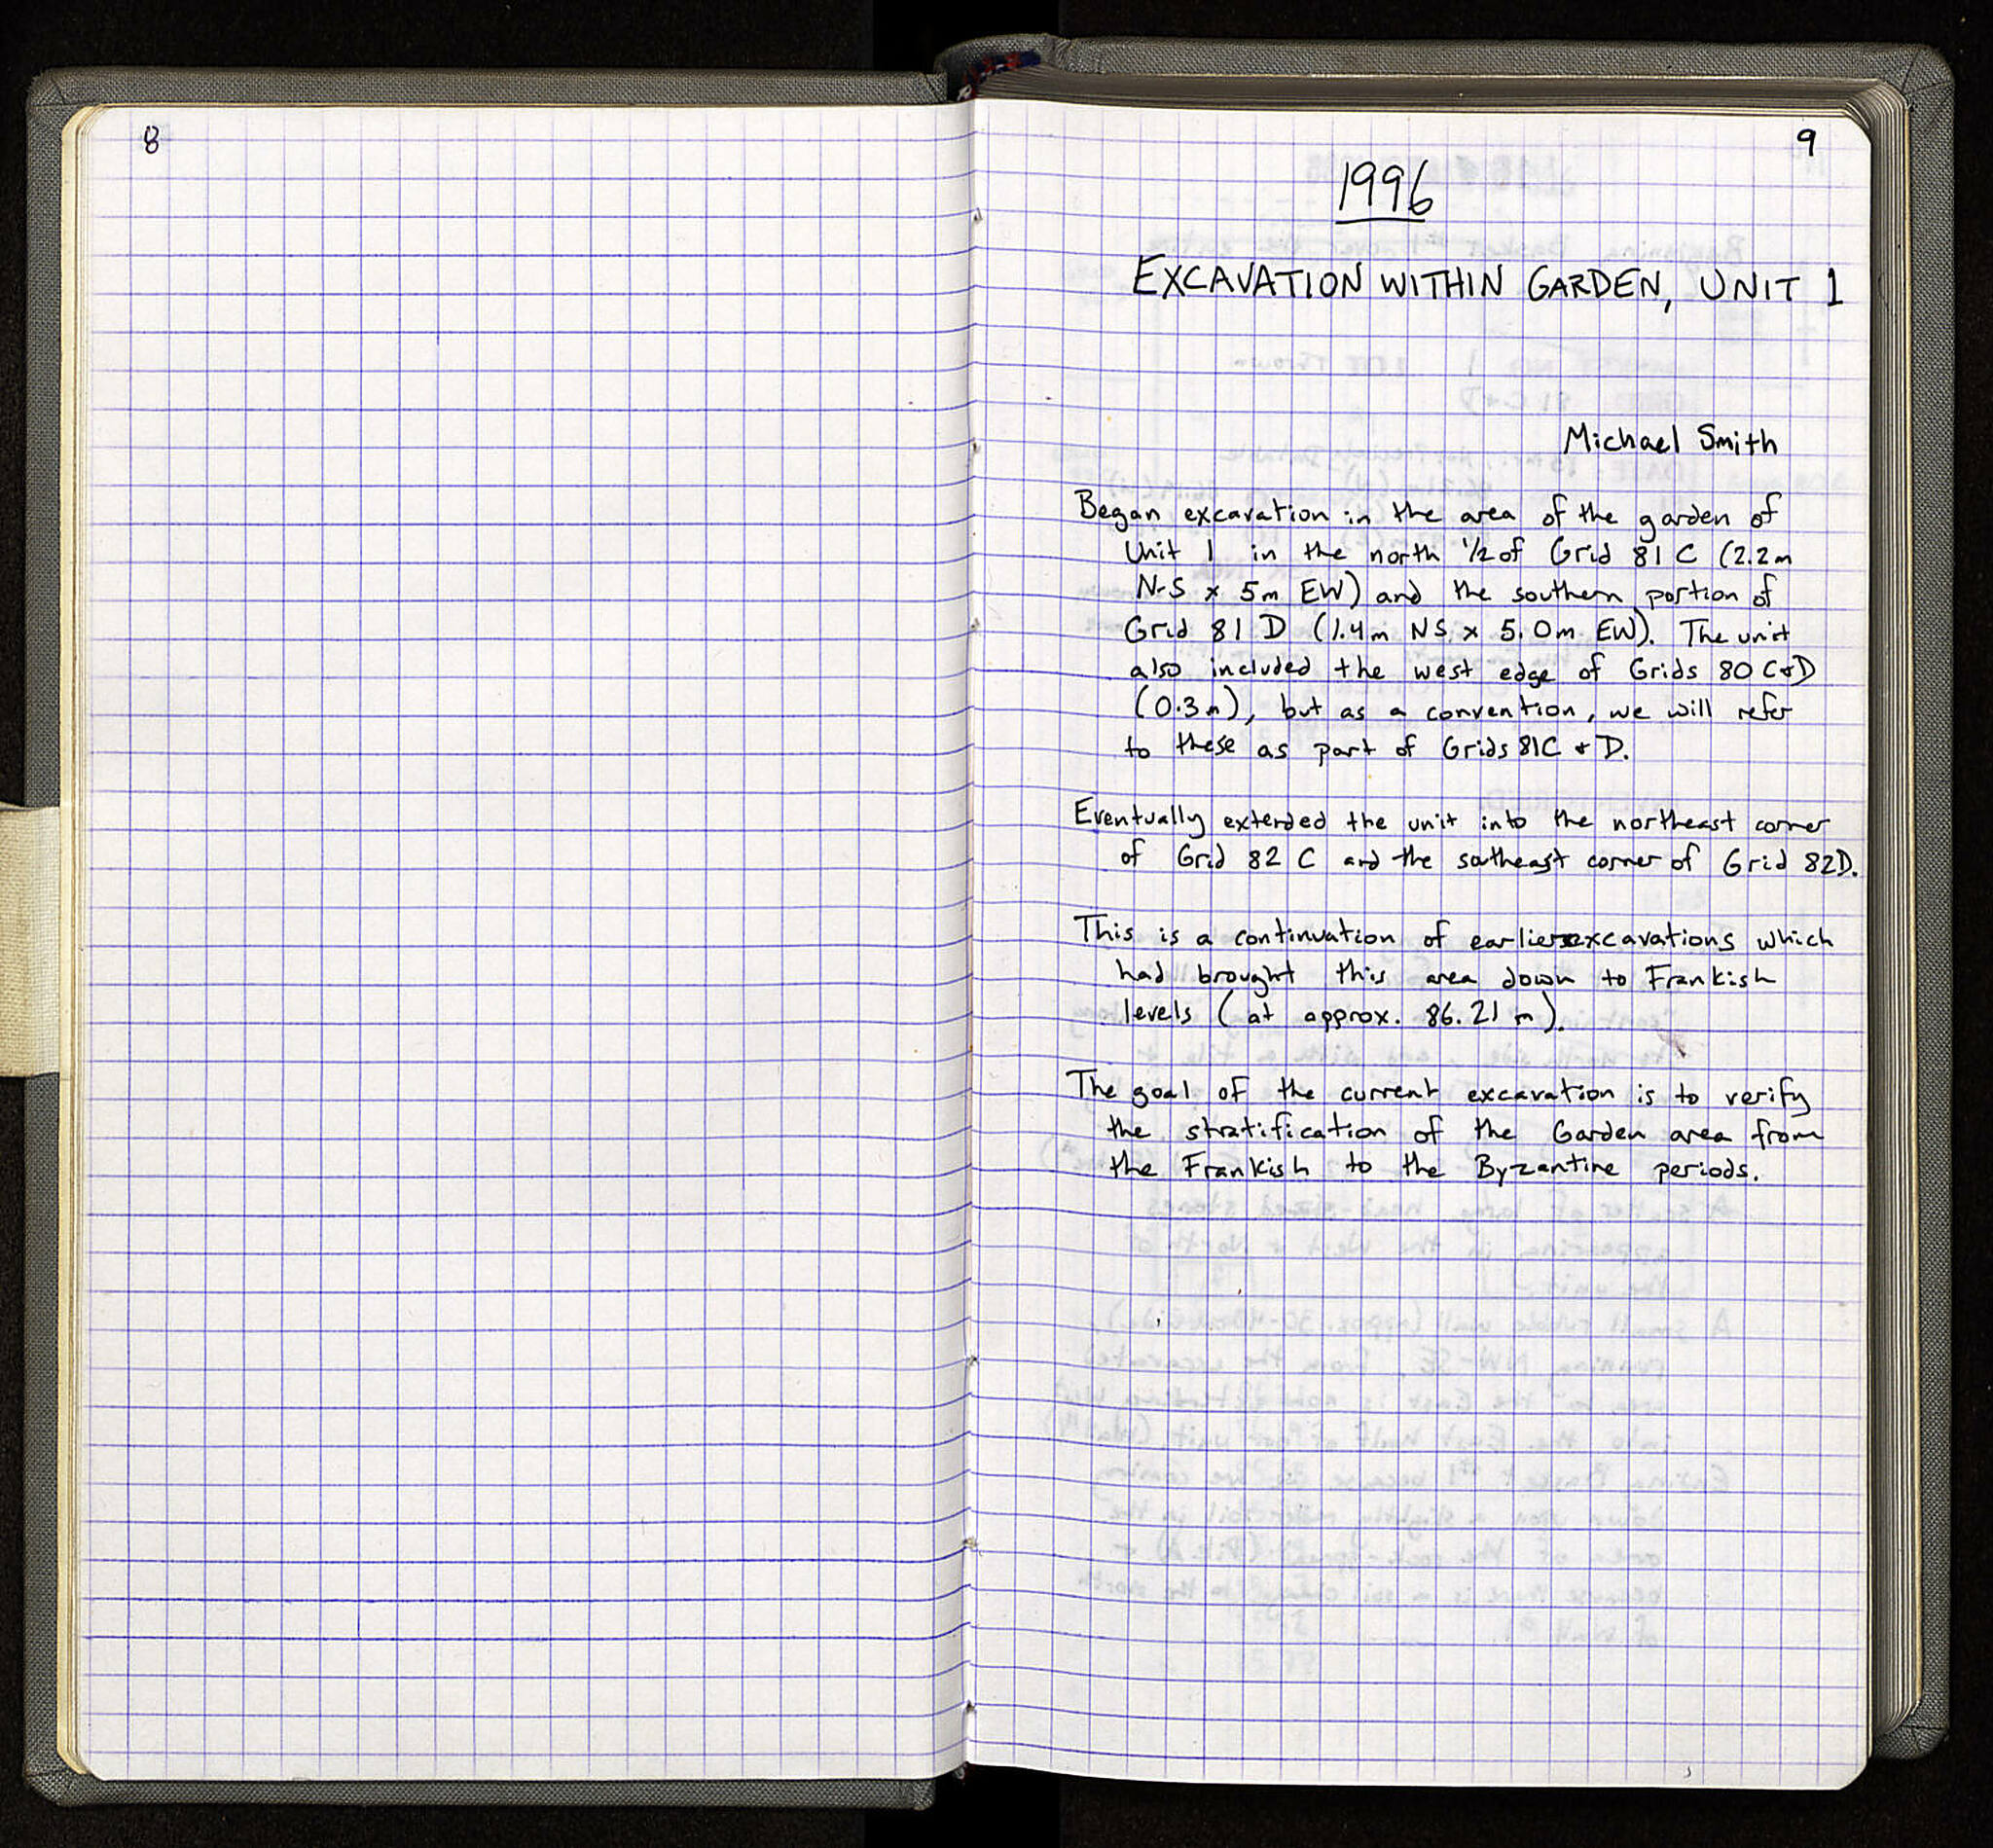 8
9
1996
EXCAVATION WITHIN GARDEN, UNIT 1
Michael Smith
Began excavation in the area of the garden of
Unit 1 in the north 1/2 of Grid 81 C (2.2m
N-S x 5m EW) and the southern portion of
Grid 81 D (1.4m NS x 5.0m EW). The unit
also included the west edge of Grids 80 C+D
(0.3m), but as a convention, we will refer
to these as part of Grids 81C + D.
Eventually extended the unit into the northeast corner
of Grid 82 C and the southeast corner of Grid 82D.
This is a continuation of earlier excavations which
had brought this area down to Frankish
levels (at approx. 86.21 m).
The goal of the current excavation is to verify
the stratification of the Garden area from
the Frankish to the Byzantine periods.